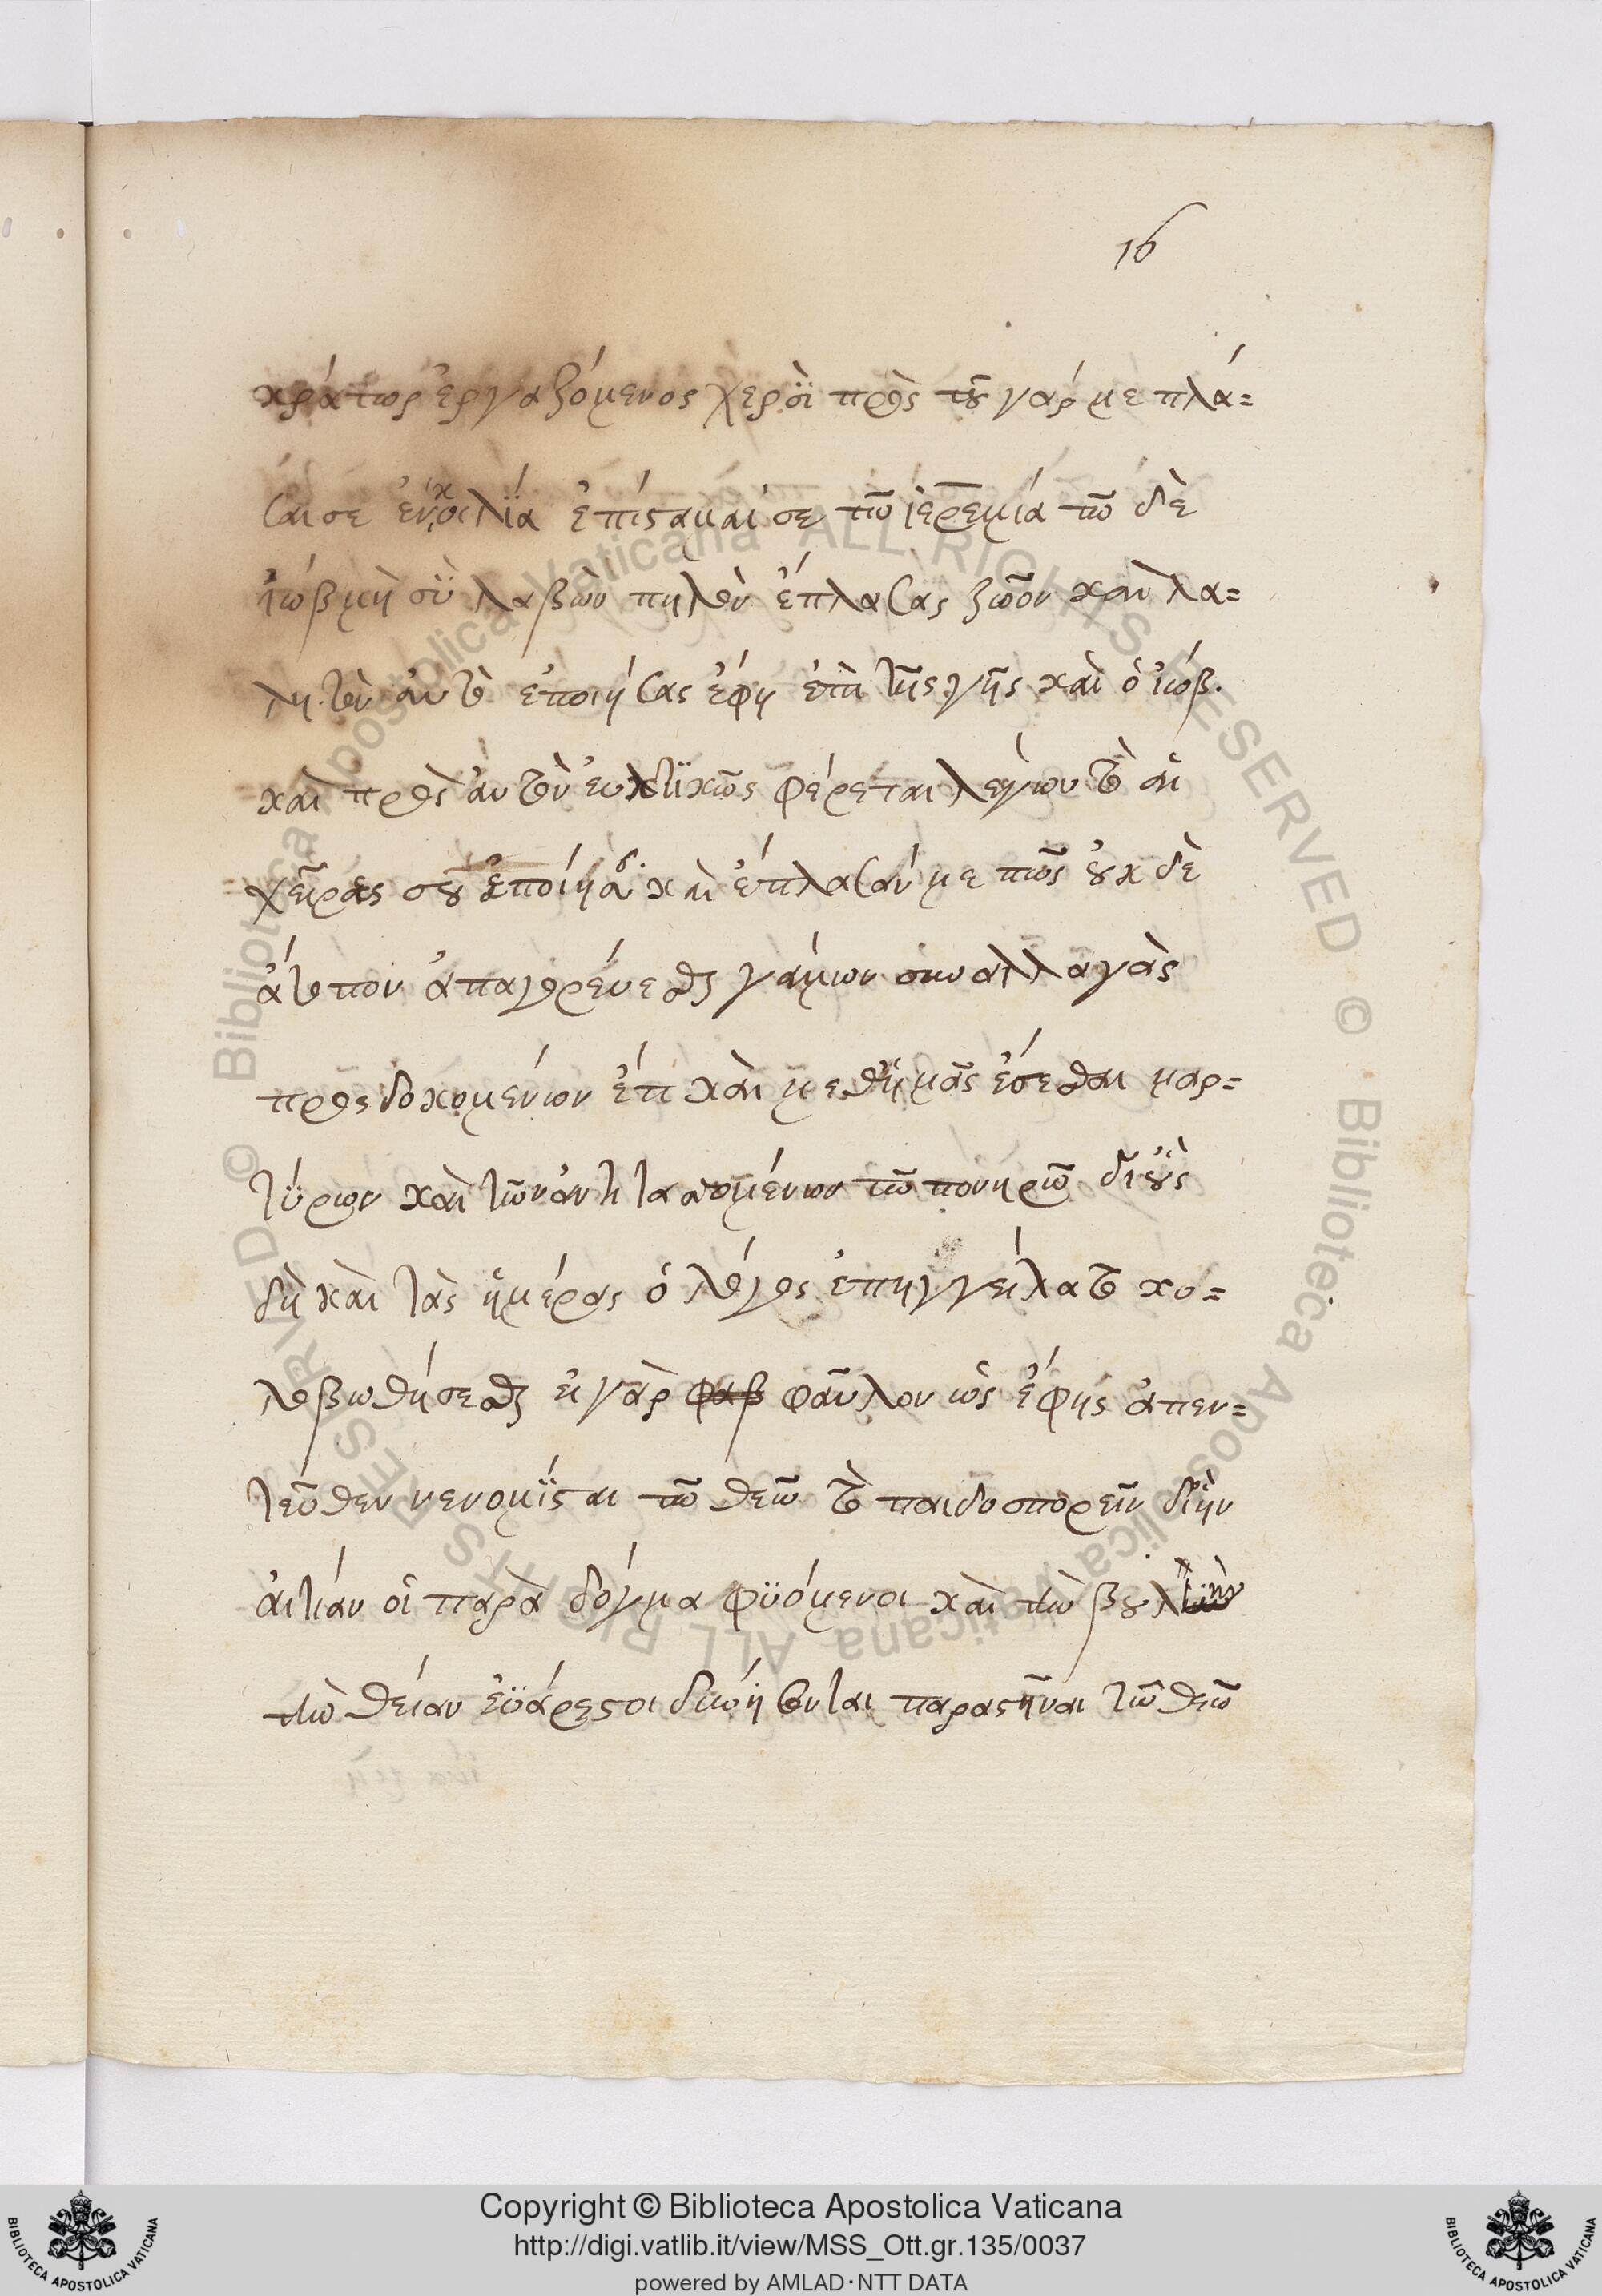 16
κράτωρ ἐργαζόμενος χερσὶ πρὸς τοῦ γάρ με πλά=
σαι σε ἐν κοιλία ἐπίσταμαί σε τῶ ἱερεμία τῶ δὲ
ἰὼβ μὴ σὺ λαβὼν πηλὸν ἔπλασας ζῶον καὶ λα=
λητὸν αὐτὸ ἐποιήσας ἔφη ἐπὶ τῆς γῆς καὶ ὁ ἰώβ.
καὶ πρὸς αὐτὸν εὐκτικῶς φέρεται λέγων τὸ αἱ
χεῖρες σου ἐποίησαν καὶ ἔπλασάν με πῶς οὐκ δὲ
ἄτοπον ἀπαγορέυεσθαι γάμων συναλλαγὰς
προσδοκομένων ἔτι καὶ μεθ' ἡμᾶς ἔσεσθαι μαρ=
τύρων καὶ τῶν ἀντιτασσομένων τῶ πονηρῶ δι' οὓς
δὴ καὶ τὰς ἡμέρας ὁ λόγος ἐπηγγείλατο κο=
λοβωθήσεσθαι εἰ γὰρ φαβ φαῦλον ὡς ἔφης ἀπεν=
τεῦθεν νενομίσται τῶ θεῶ τὸ παιδοσπορεῖν δι' ἣν
αἰτίαν οἱ παρὰ δόγμα φυόμενοι καὶ τὴν βουλὴν
τὴν θείαν εὐάρεστοι δυνήσονται παραστῆναι τῶ θεῶ
Copyright © Biblioteca Apostolica Vaticana
http://digi.vatlib.it/view/MSS_Ott.gr.135/0037
powered by AMLAD·NTT DATA
© Biblioteca Apostolica Vaticana ALL RIGHTS RESERVED
© Biblioteca Apostolica Vaticana ALL RIGHTS RESERVED
BIBLIOTECA APOSTOLICA VATICANA
BIBLIOTECA APOSTOLICA VATICANA